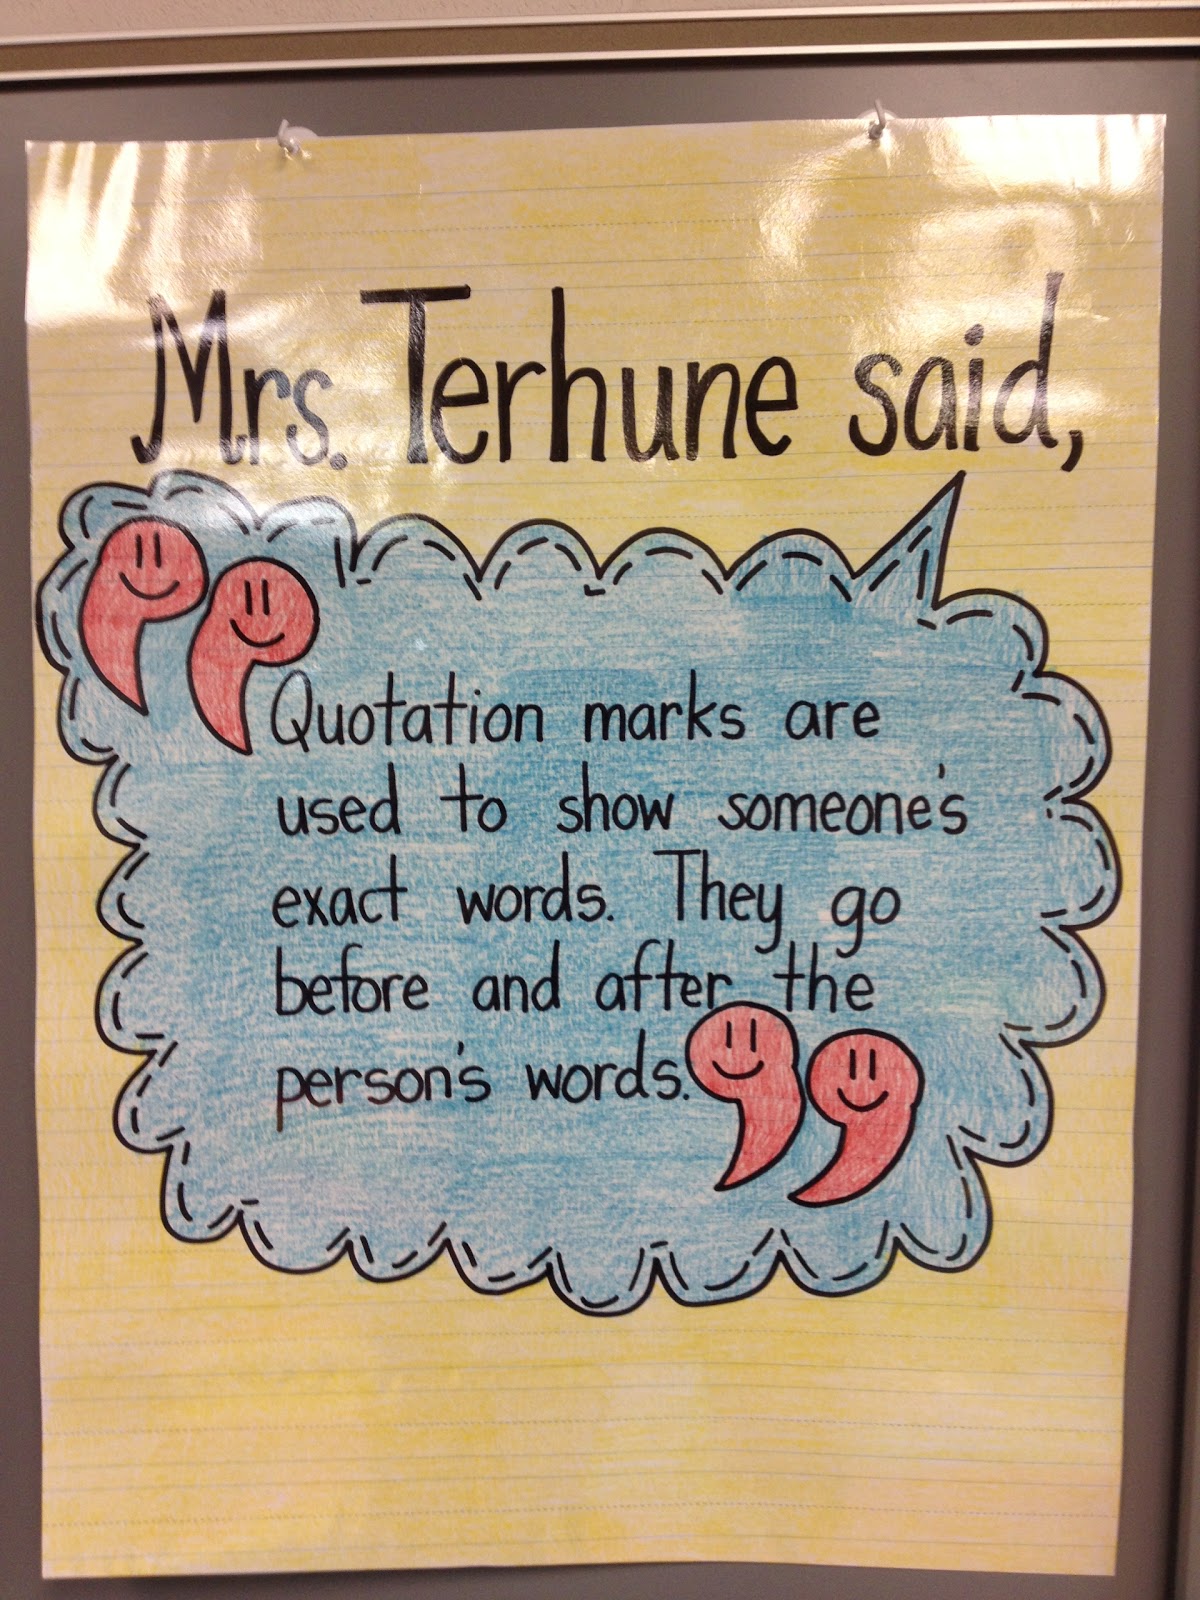 Mrs. Terhune said,
“Quotation marks are
used to show someone's
exact words. They go
before and after the
person's words.”